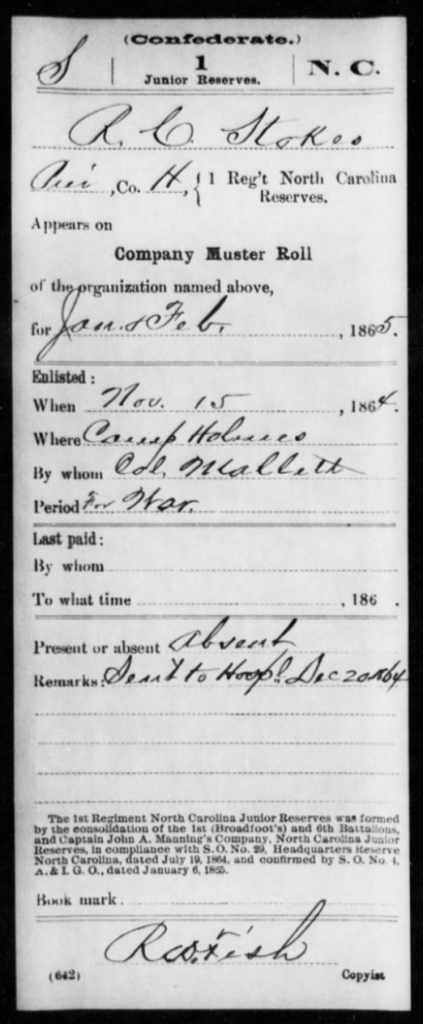 (Confederate.)
S | 1 | N. C.
Junior Reserves.
R. C. Stokes
Pri , Co. H , { 1 Reg't North Carolina
Reserves.
Appears on
Company Muster Roll
of the organization named above,
for Jan. & Feb. , 1865.
Enlisted :
When Nov. 15 , 1864.
Where Camp Holmes
By whom Col. Mallett
Period For War.
Last paid :
By whom
To what time , 186 .
Present or absent Absent
Remarks: Sent to Hospl. Dec 20 1864
The 1st Regiment North Carolina Junior Reserves was formed
by the consolidation of the 1st (Broadfoot's) and 6th Battalions,
and Captain John A. Manning's Company, North Carolina Junior
Reserves, in compliance with S. O. No. 29, Headquarters Reserve
North Carolina, dated July 19, 1864, and confirmed by S. O. No. 4,
A. & I. G. O., dated January 6, 1865.
Book mark :
Fish
(642) Copyist